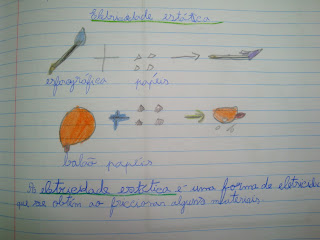 Eletricidade estática
esferográfica papéis
balão papéis
A eletricidade estática é uma forma de eletricidade
que se obtém ao friccionar alguns materiais.